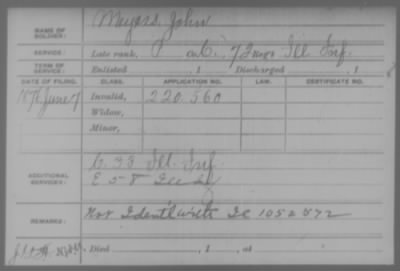 NAME OF SOLDIER: Meyers, John
SERVICE: Late rank, P Co. C, 72 Regt Ill Inf.
TERM OF SERVICE: Enlisted , 1 Discharged , 1
DATE OF FILING. CLASS. APPLICATION NO. LAW. CERTIFICATE NO.
1876 June 7 Invalid, 220.560
Widow,
Minor,
C. 33 Ill. Inf.
ADDITIONAL SERVICES: E 58 Ill Inf
REMARKS: Not Ident'l with IC 1052572
Died , 1 , at